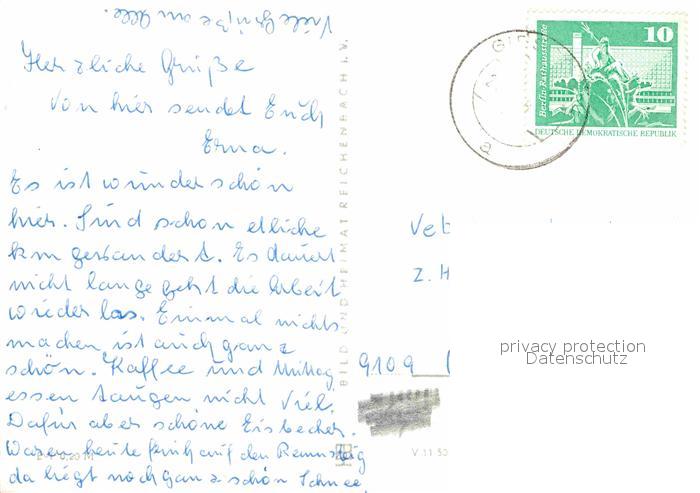 Viele Grüße an Alle.
Herzliche Grüße
von hier sendet Euch
Erna.
Es ist wunderschön
hier. Sind schon etliche
km gewandert. Es dauert
nicht lange geht die Arbeit
wieder los. Einmal nichts
machen ist auch ganz
schön. Kaffee und Mittag
essen taugen nicht viel.
Dafür aber schöne Eisbecher.
Waren heute früh auf den Rennsteig
da liegt noch ganz schön Schnee
BILD UND HEIMAT REICHENBACH I. V.
V 11 50
10
Berlin-Rathausstraße
DEUTSCHE DEMOKRATISCHE REPUBLIK
a
Vet
z. H
9109
privacy protection
Datenschutz